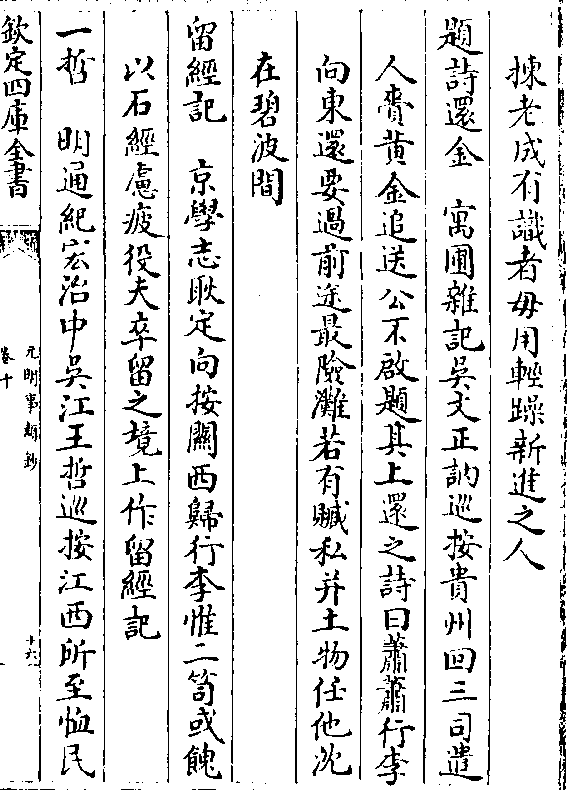 揀老成有識者毋用輕躁新進之人
題詩還金　寓圃雜記吳文正訥巡按貴州回三司遣
人賫黃金追送公不啟題其上還之詩曰蕭蕭行李
向東還要過前途最險灘若有贓私并土物任他沈
在碧波間
留經記　京學志耿定向按關西歸行李惟二笥或餽
以石經慮疲役夫卒留之境上作留經記
一哲　明通紀宏治中吳江王哲巡按江西所至恤民
欽定四庫全書
元明事類鈔
卷十
十六